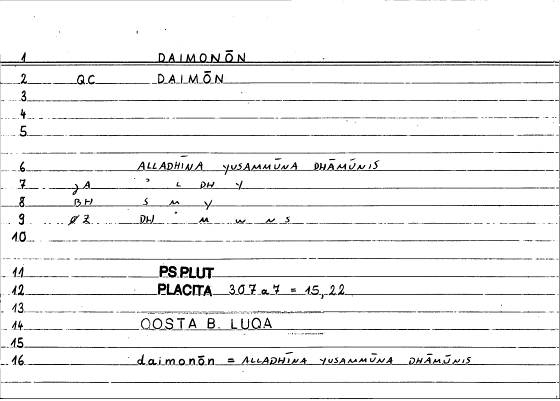 1 DAIMONŌN
2 QC DAIMŌN
3
4
5
6 ALLADHĪNA YUSAMMŪNA DHĀMŪNIS
7 JA ʾ L DH Y
8 BH S M Y
9 ØZ DH ʾ M W N S
10
11 PS.PLUT
12 PLACITA 307a7 = 15,22
13
14 QOSTA B. LUQA
15
16 daimonōn = ALLADHĪNA YUSAMMŪNA DHĀMŪNIS